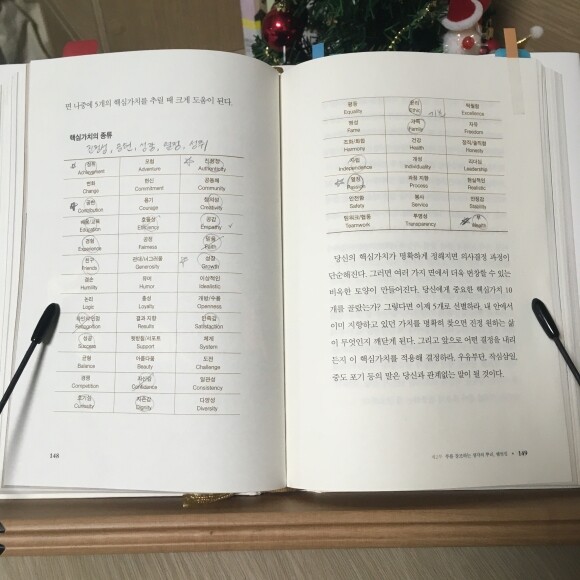 면 나중에 5개의 핵심가치를 추릴 때 크게 도움이 된다.
핵심가치의 종류
진정성, 공헌, 성장, 열정, 성취
성취 모험 진정성
Achievement Adventure Authenticity
변화 헌신 공동체
Change Commitment Community
공헌 용기 창의성
Contribution Courage Creativity
배움/교육 효율성 공감
Education Efficiency Empathy
경험 공정 믿음
Experience Fairness Faith
친구 관대/너그러움 성장
Friends Generosity Growth
겸손 유머 이상적인
Humility Humor Idealistic
논리 충성 개방/수용
Logic Loyalty Openness
결과 지향 만족감
Recognition Results Satisfaction
성공 뒷받침/서포트 체계
Success Support System
균형 아름다움 도전
Balance Beauty Challenge
경쟁 자신감 일관성
Competition Confidence Consistency
호기심 자존감 다양성
Curiosity Dignity Diversity
148
평등 윤리 탁월함
Equality Ethic Excellence
명성 가족 자유
Fame Family Freedom
조화/화합 건강 정직/솔직함
Harmony Health Honesty
자립 개성 리더십
Independence Individuality Leadership
열정 과정 지향 현실적인
Passion Process Realistic
안전함 봉사 안정감
Safety Service Stability
팀워크/협동 투명성 부
Teamwork Transparency Wealth
당신의 핵심가치가 명확하게 정해지면 의사결정 과정이
단순해진다. 그러면 여러 가지 면에서 더욱 번창할 수 있는
비옥한 토양이 만들어진다. 당신에게 중요한 핵심가치 10
개를 골랐는가? 그렇다면 이제 5개로 선별하라. 내 안에서
이미 지향하고 있던 가치를 명확히 찾으면 진정 원하는 삶
이 무엇인지 깨닫게 된다. 그리고 앞으로 어떤 결정을 내리
든지 이 핵심가치를 적용해 결정하라. 우유부단, 작심삼일,
중도 포기 등의 말은 당신과 관계없는 말이 될 것이다.
149